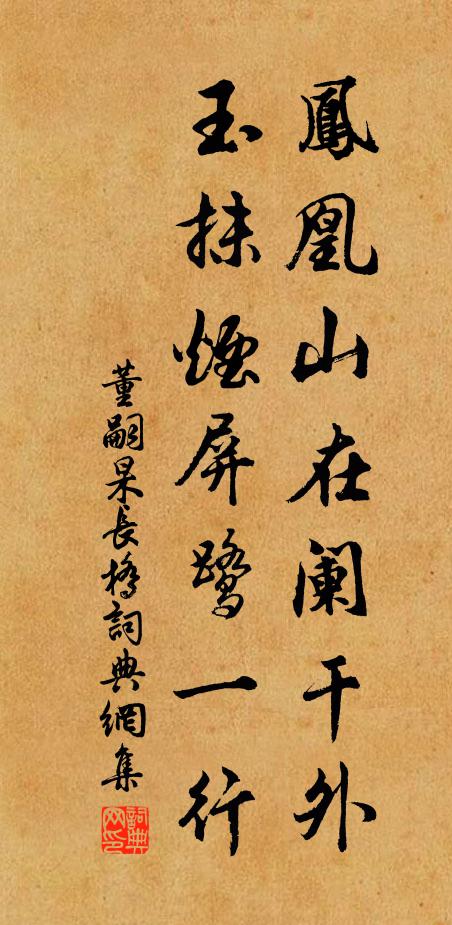 鳳凰山在阑干外
玉抹煙屏鹭一行
董嗣杲長橋詞典網集
詞典网印